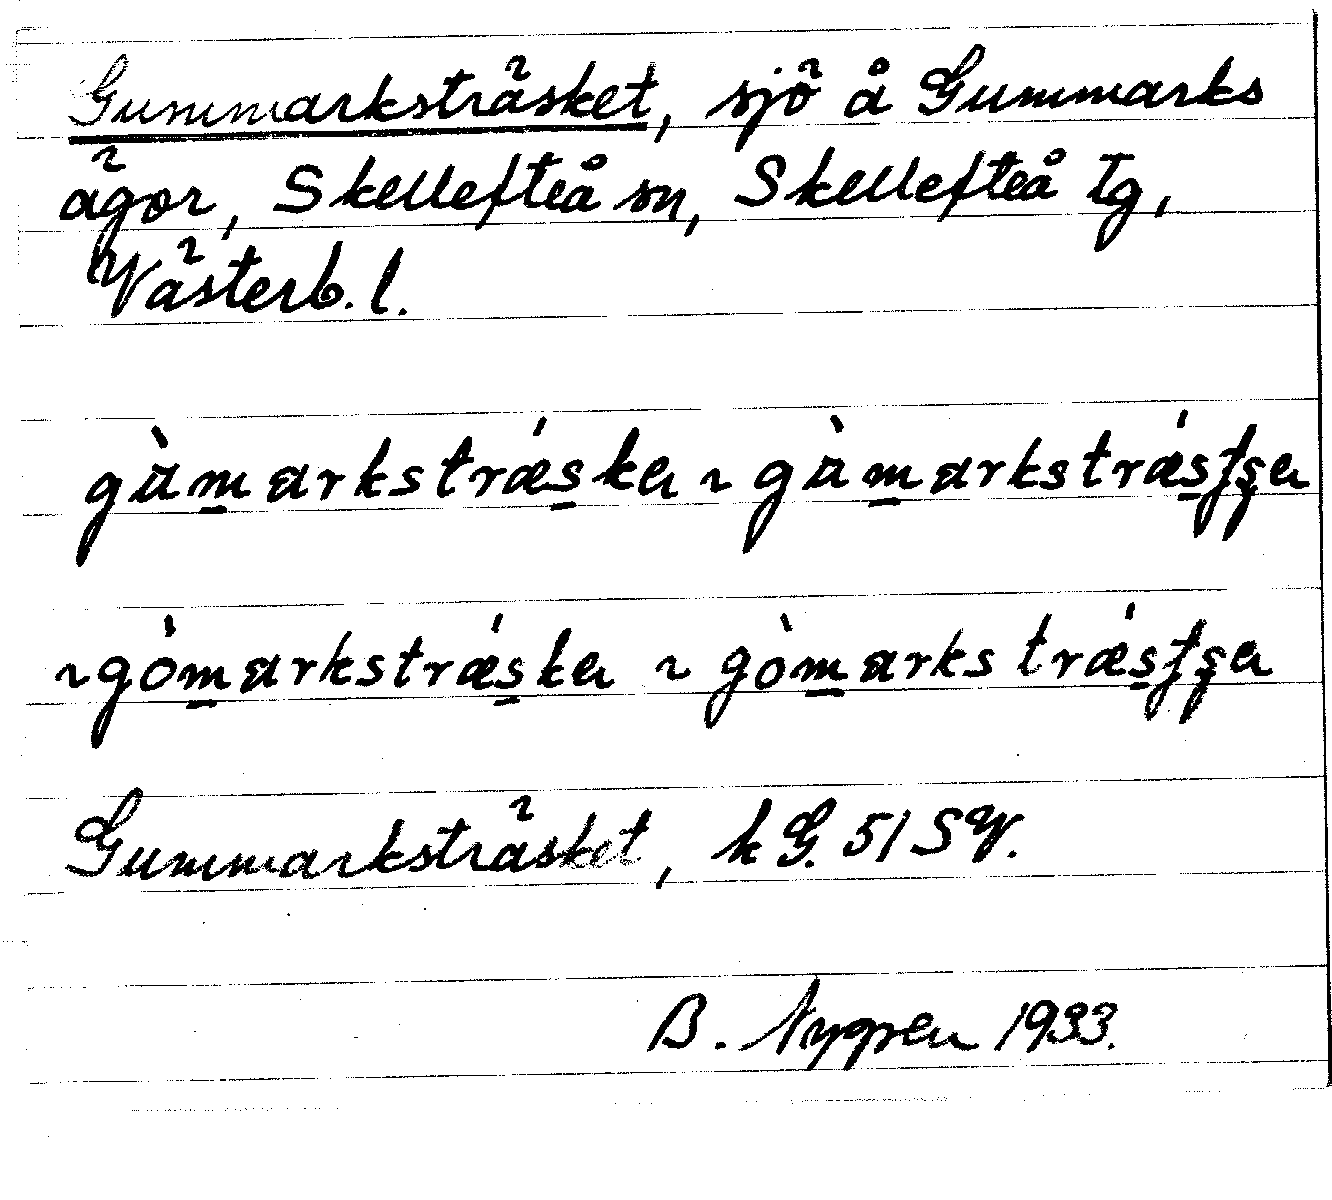 Gummarksträsket, sjö å Gummarks
ägor, Skellefteå sn, Skellefteå Tg,
Västerb. l.
gùm̲arkstrǽs̲ka ~ gùm̲arkstrǽs̲t̡s̡a
~ gòm̲arkstrǽs̲ka ~ gòm̲arkstrǽs̲t̡s̡a
Gummarksträsket, k G. 51 SV.
B. Nygren 1933.